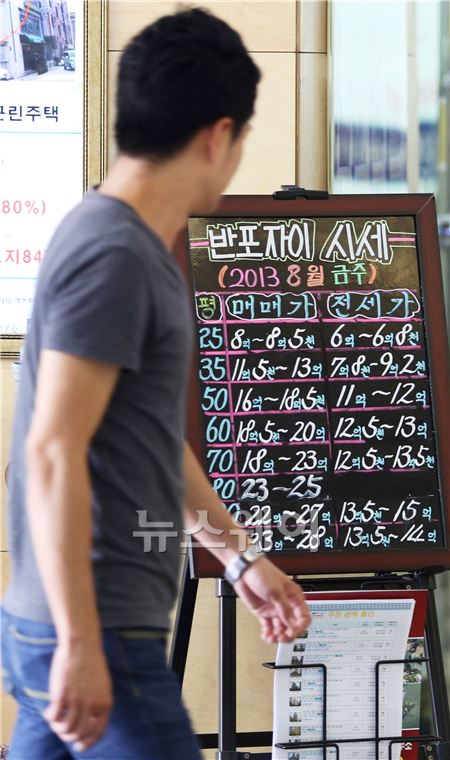 근린주택
80%)
지84
반포자이 시세
(2013 8월 금주)
평 매매가 전세가
25 8억~8억5천 6억~6억8천
35 11억5천~13억 7억8천~9억2천
50 16억~18억5천 11억~12억
60 18억5천~20억 12억5천~13억
70 18억~23억 12억5천~13억5천
80 23~25
22억~27억 13억5천~15억
23억~28억 13억5천~14억
뉴스웨이
추천 매물